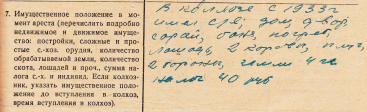 7. Имущественное положение в
момент ареста (перечислить подробно
недвижимое и движимое имущество:
постройки, сложные и простые
с.-хоз. орудия, количество
обрабатываемой земли, количество
скота, лошадей и проч., сумма налога
с.-х. и индивид. Если колхозник,
указать имущественное положение
до вступления в колхоз,
время вступления в колхоз).
В колхозе с 1933 г
имел с/х: дом, двор
сарай, баня, погреб,
лошадь 2 коровы, плуг,
2 бороны, земли 4 га
налог 40 руб